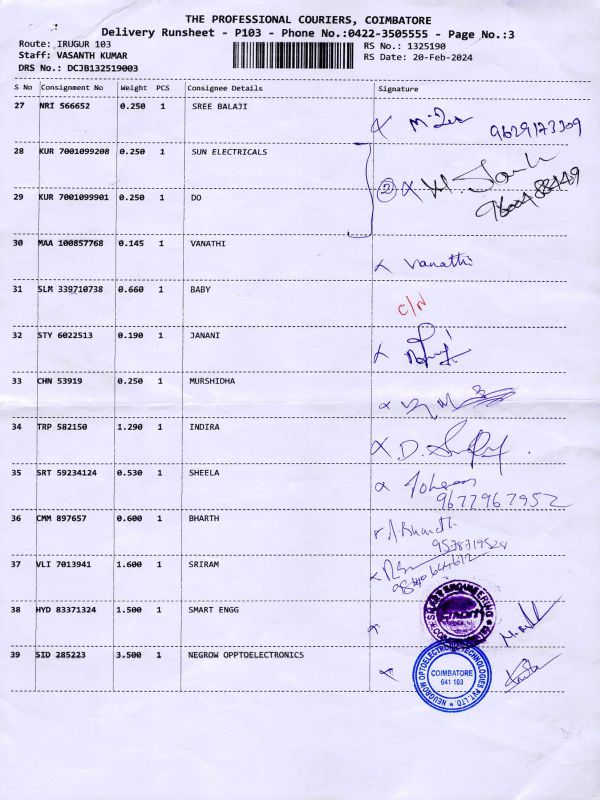 THE PROFESSIONAL COURIERS, COIMBATORE
Delivery Runsheet - P103 - Phone No.:0422-3505555 - Page No.:3
Route: IRUGUR 103
RS No.: 1325190
Staff: VASANTH KUMAR
RS Date: 20-Feb-2024
DRS No.: DCJB132519003
S No Consignment No Weight PCS Consignee Details Signature
27 NRI 566652 0.250 1 SREE BALAJI
9629173309
28 KUR 7001099208 0.250 1 SUN ELECTRICALS
29 KUR 7001099901 0.250 1 DO
②
30 MAA 100857768 0.145 1 VANATHI
Vanathi
31 SLM 339710738 0.660 1 BABY
C/N
32 STY 6022513 0.190 1 JANANI
33 CHN 53919 0.250 1 MURSHIDHA
34 TRP 582150 1.290 1 INDIRA
35 SRT 59234124 0.530 1 SHEELA
9677967952
36 CMM 897657 0.600 1 BHARTH
37 VLI 7013941 1.600 1 SRIRAM
38 HYD 83371324 1.500 1 SMART ENGG
39 SID 285223 3.500 1 NEGROW OPPTOELECTRONICS
NEUGROW OPTOELECTRONIC TECHNOLOGIES PVT. LTD
COIMBATORE
641 103